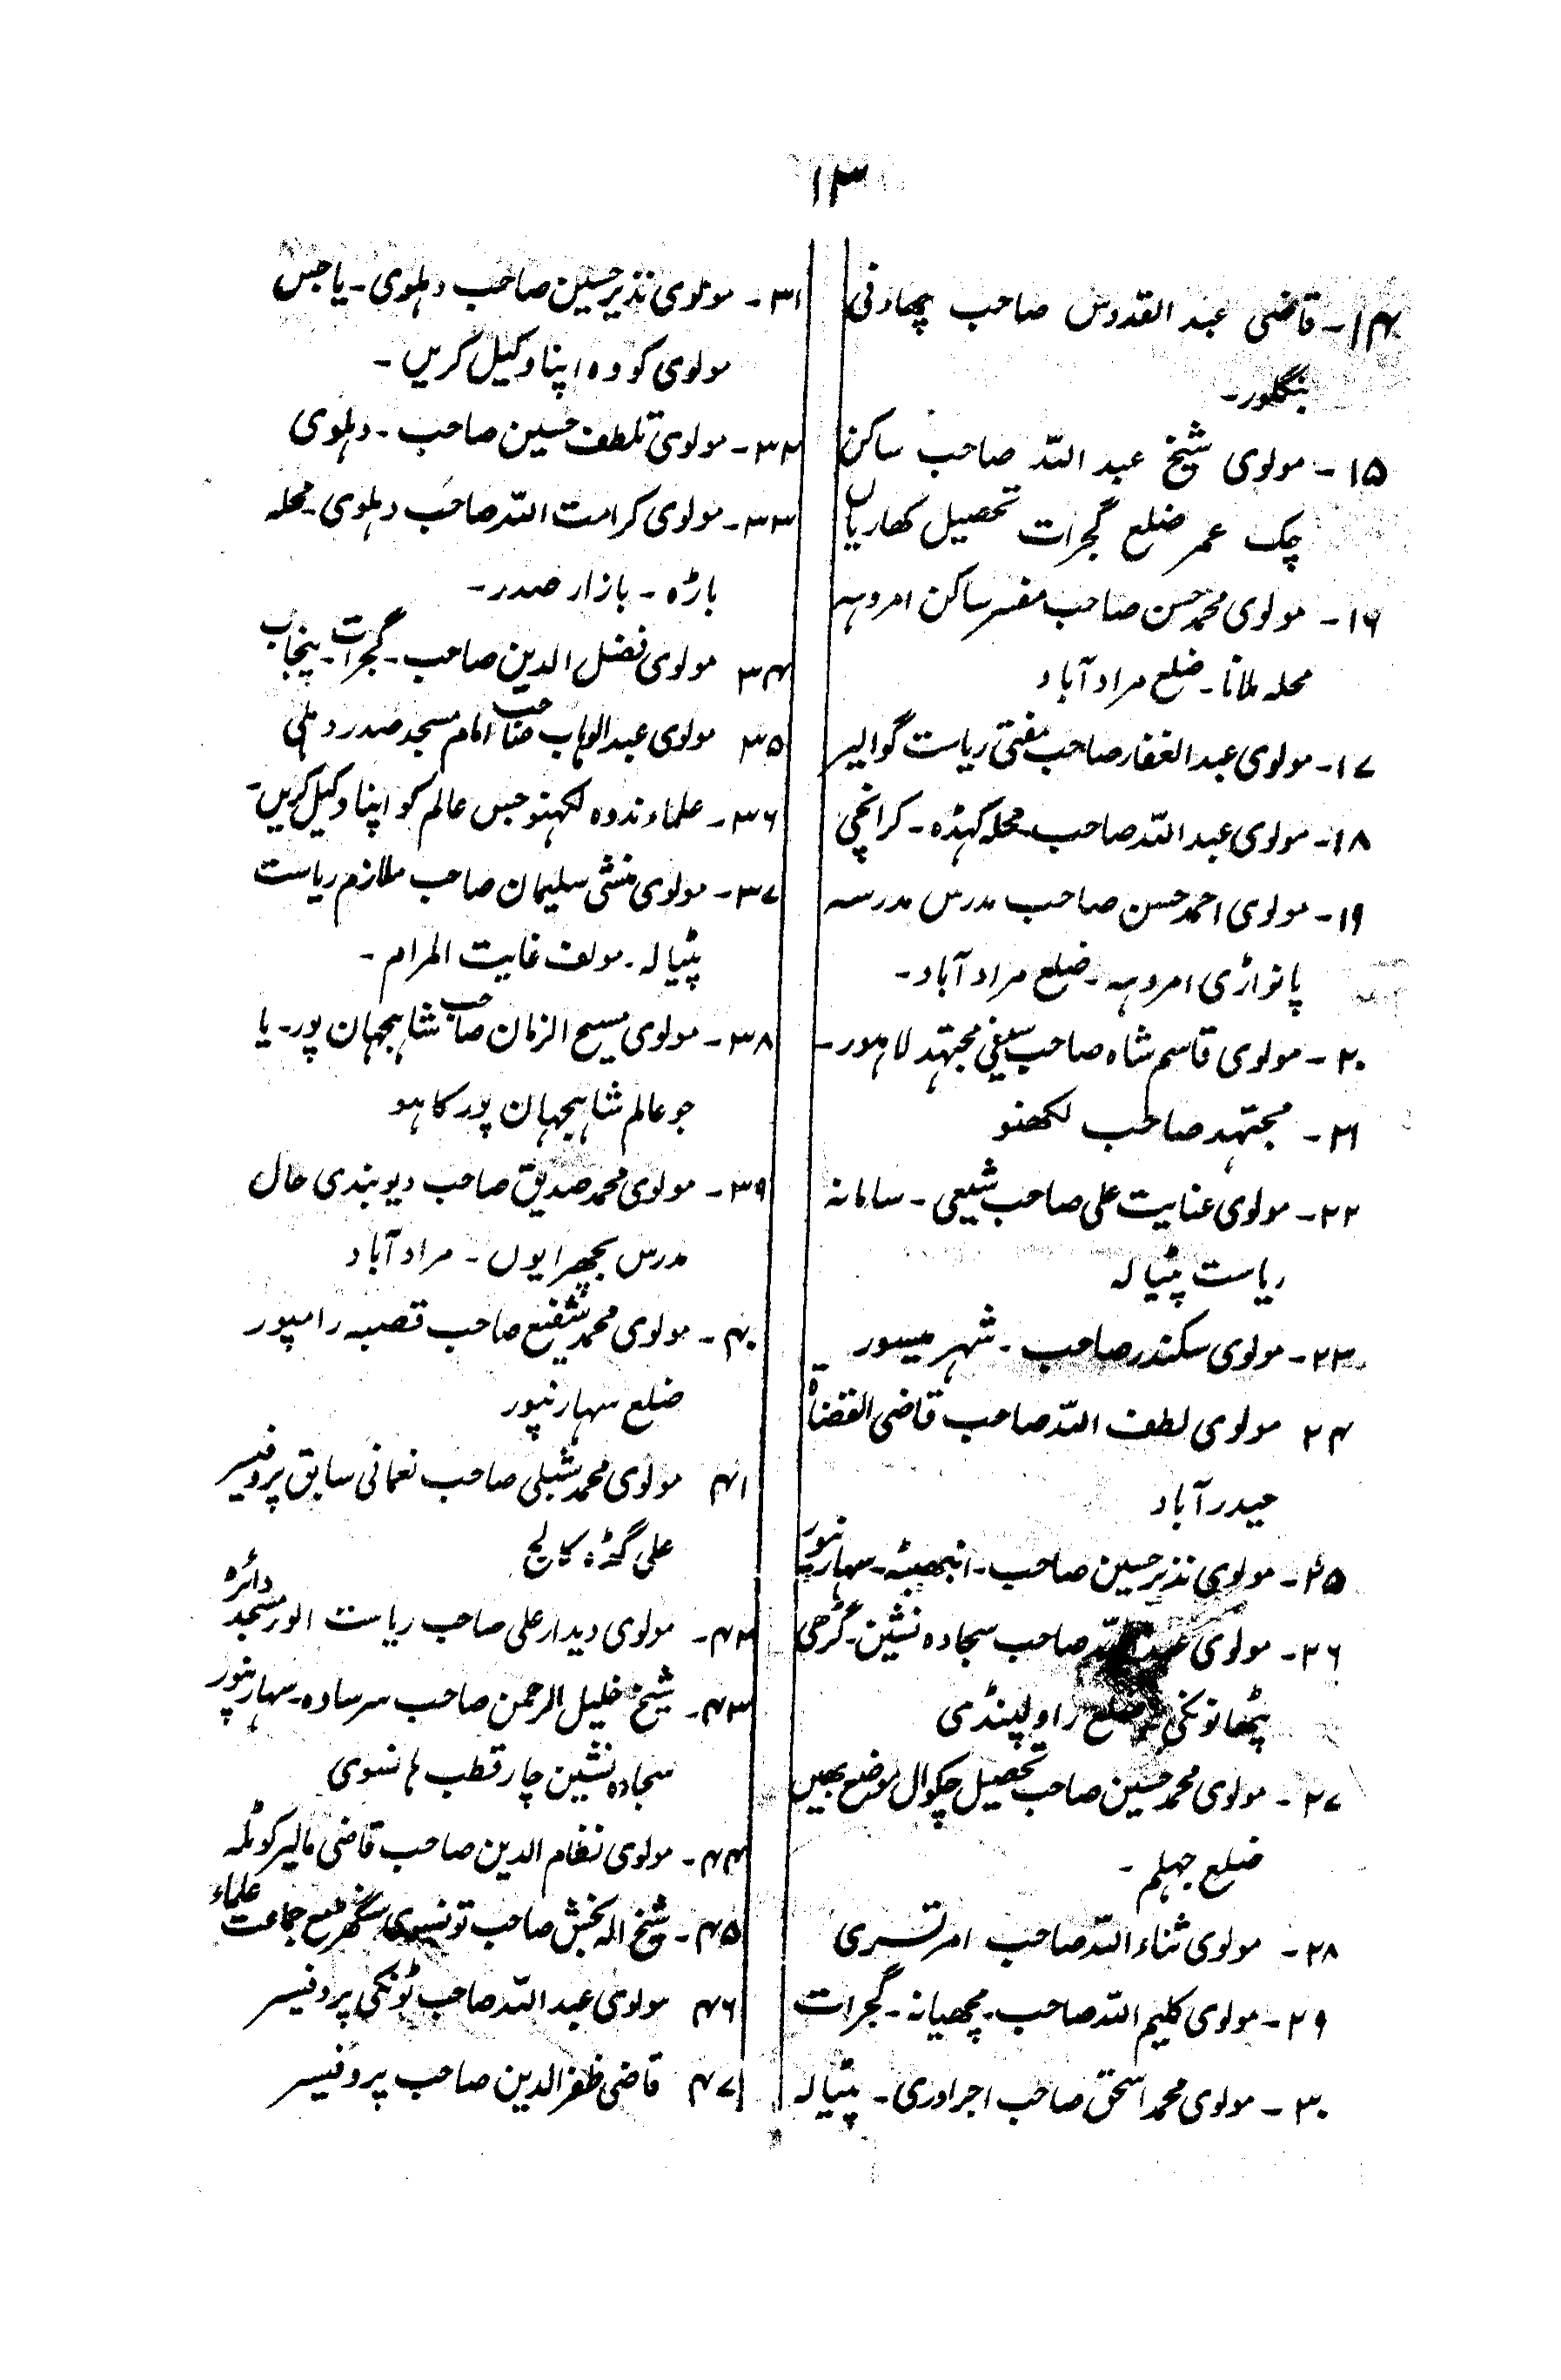 ۱۳
۱۴ - قاضی عبد القدوس صاحب چھاونی
بنگلور -
۱۵ - مولوی شیخ عبد اللہ صاحب ساکن
چک عمر ضلع گجرات تحصیل کھاریاں
۱۶ - مولوی محمد حسن صاحب مفسر ساکن امروہہ
محلہ ملانا - ضلع مراد آباد
۱۷ - مولوی عبد الغفار صاحب مفتی ریاست گوالیر
۱۸ - مولوی عبد اللہ صاحب محلہ کہڈہ - کرانچی
۱۹ - مولوی احمد حسن صاحب مدرس مدرسہ
پانواڑی امروہہ - ضلع مراد آباد -
۲۰ - مولوی قاسم شاہ صاحب سیفی مجتہد لاہور -
۲۱ - مجتہد صاحب لکھنو
۲۲ - مولوی عنایت علی صاحب شیعی - سامانہ
ریاست پٹیالہ
۲۳ - مولوی سکندر صاحب - شہر میسور
۲۴ مولوی لطف اللہ صاحب قاضی القضاۃ
حیدر آباد
۲۵ - مولوی نذیر حسین صاحب - انبھیٹہ - سہارنپور
۲۶ - مولوی صاحب سجادہ نشین - گڑھی
پٹھانونکی ضلع راولپنڈی
۲۷ - مولوی محمد حسین صاحب تحصیل چکوال موضع بھیں
ضلع جہلم -
۲۸ - مولوی ثناء اللہ صاحب امرتسری
۲۹ - مولوی کلیم اللہ صاحب - مچھیانہ - گجرات
۳۰ - مولوی محمد اسحق صاحب اجراوری - پٹیالہ
۳۱ - مولوی نذیر حسین صاحب دہلوی - یا جس
مولوی کو وہ اپنا وکیل کریں -
۳۲ - مولوی تلطف حسین صاحب - دہلوی
۳۳ - مولوی کرامت اللہ صاحب دہلوی - محلہ
باڑہ - بازار صدر -
۳۴ مولوی فضل الدین صاحب - گجرات - پنجاب
۳۵ مولوی عبد الوہاب صاحب امام مسجد صدر دہلی
۳۶ - علماء ندوہ لکہنو جس عالم کو اپنا وکیل کریں -
۳۷ - مولوی منشی سلیمان صاحب ملازم ریاست
پٹیالہ - مولف غایت المرام -
۳۸ - مولوی مسیح الزمان صاحب شاہجہان پور - یا
جو عالم شاہجہان پور کا ہو
۳۹ - مولوی محمد صدیق صاحب دیوبندی حال
مدرس بچھرایوں - مراد آباد
۴۰ - مولوی محمد شفیع صاحب قصبہ رامپور
ضلع سہارنپور
۴۱ مولوی محمد شبلی صاحب نعمانی سابق پروفیسر
علی گڈہ کالج
۴۲ - مولوی دیدار علی صاحب ریاست الور مسجد دائرہ
۴۳ - شیخ خلیل الرحمن صاحب سرسادہ - سہارنپور
سجادہ نشین چار قطب ہانسوی
۴۴ - مولوی نظام الدین صاحب قاضی مالیر کوٹلہ
۴۵ - شیخ الہ بخش صاحب تونسوی سنگھڑ مع جماعت علماء
۴۶ مولوی عبد اللہ صاحب ٹونکی پروفیسر
۴۷ قاضی ظفر الدین صاحب پروفیسر